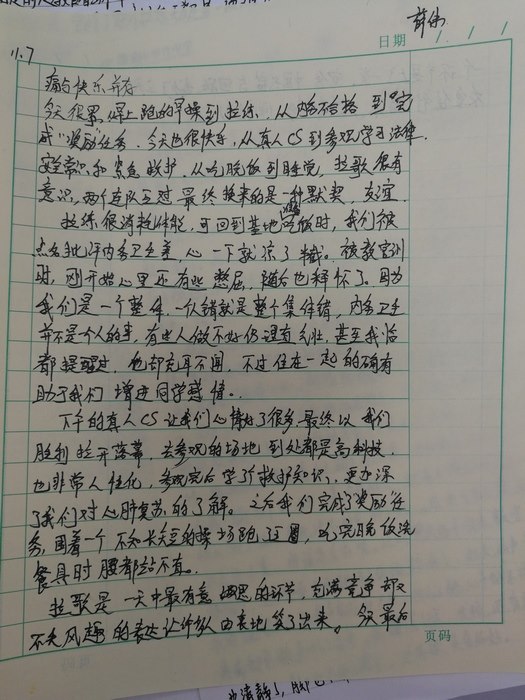 薛伟
日期
11.7
痛与快乐并存
今天很累,早上跑的早操到拉练,从内务不合格到"完
成"奖励任务,今天也很快乐,从真人CS到参观学习法律
安全常识和紧急救护,从吃晚饭到睡觉,拉歌很有
意识,两个连队互怼最终换来的是一种默契,友谊
拉练很消耗体能,可回到基地时,我们被
点名批评内务卫生差,心一下就凉了半截。被教官训
时,刚开始心里还有些憋屈,随后也释怀了。因为
我们是一个整体,一人错就是整个集体错,内务卫生
并不是个人的事,有些人做不好仍理直气壮,甚至我给
都提醒过,他却充耳不闻,不过住在一起的确有
助于我们增进同学感情。
下午的真人CS让我们心情好了很多,最终以我们
胜利拉开落幕,去参观的场地到处都是高科技,
也非常人性化,参观完后学了救护知识,更加深
了我们对心肺复苏的了解。之后我们完成了奖励任
务,围着一个不知长短的操场跑了圈,吃完晚饭洗
餐具时腰都站不直。
拉歌是一天中最有意思的环节,充满竞争却又
不失风趣的表达让你我由衷地笑了出来。今天最后
页码